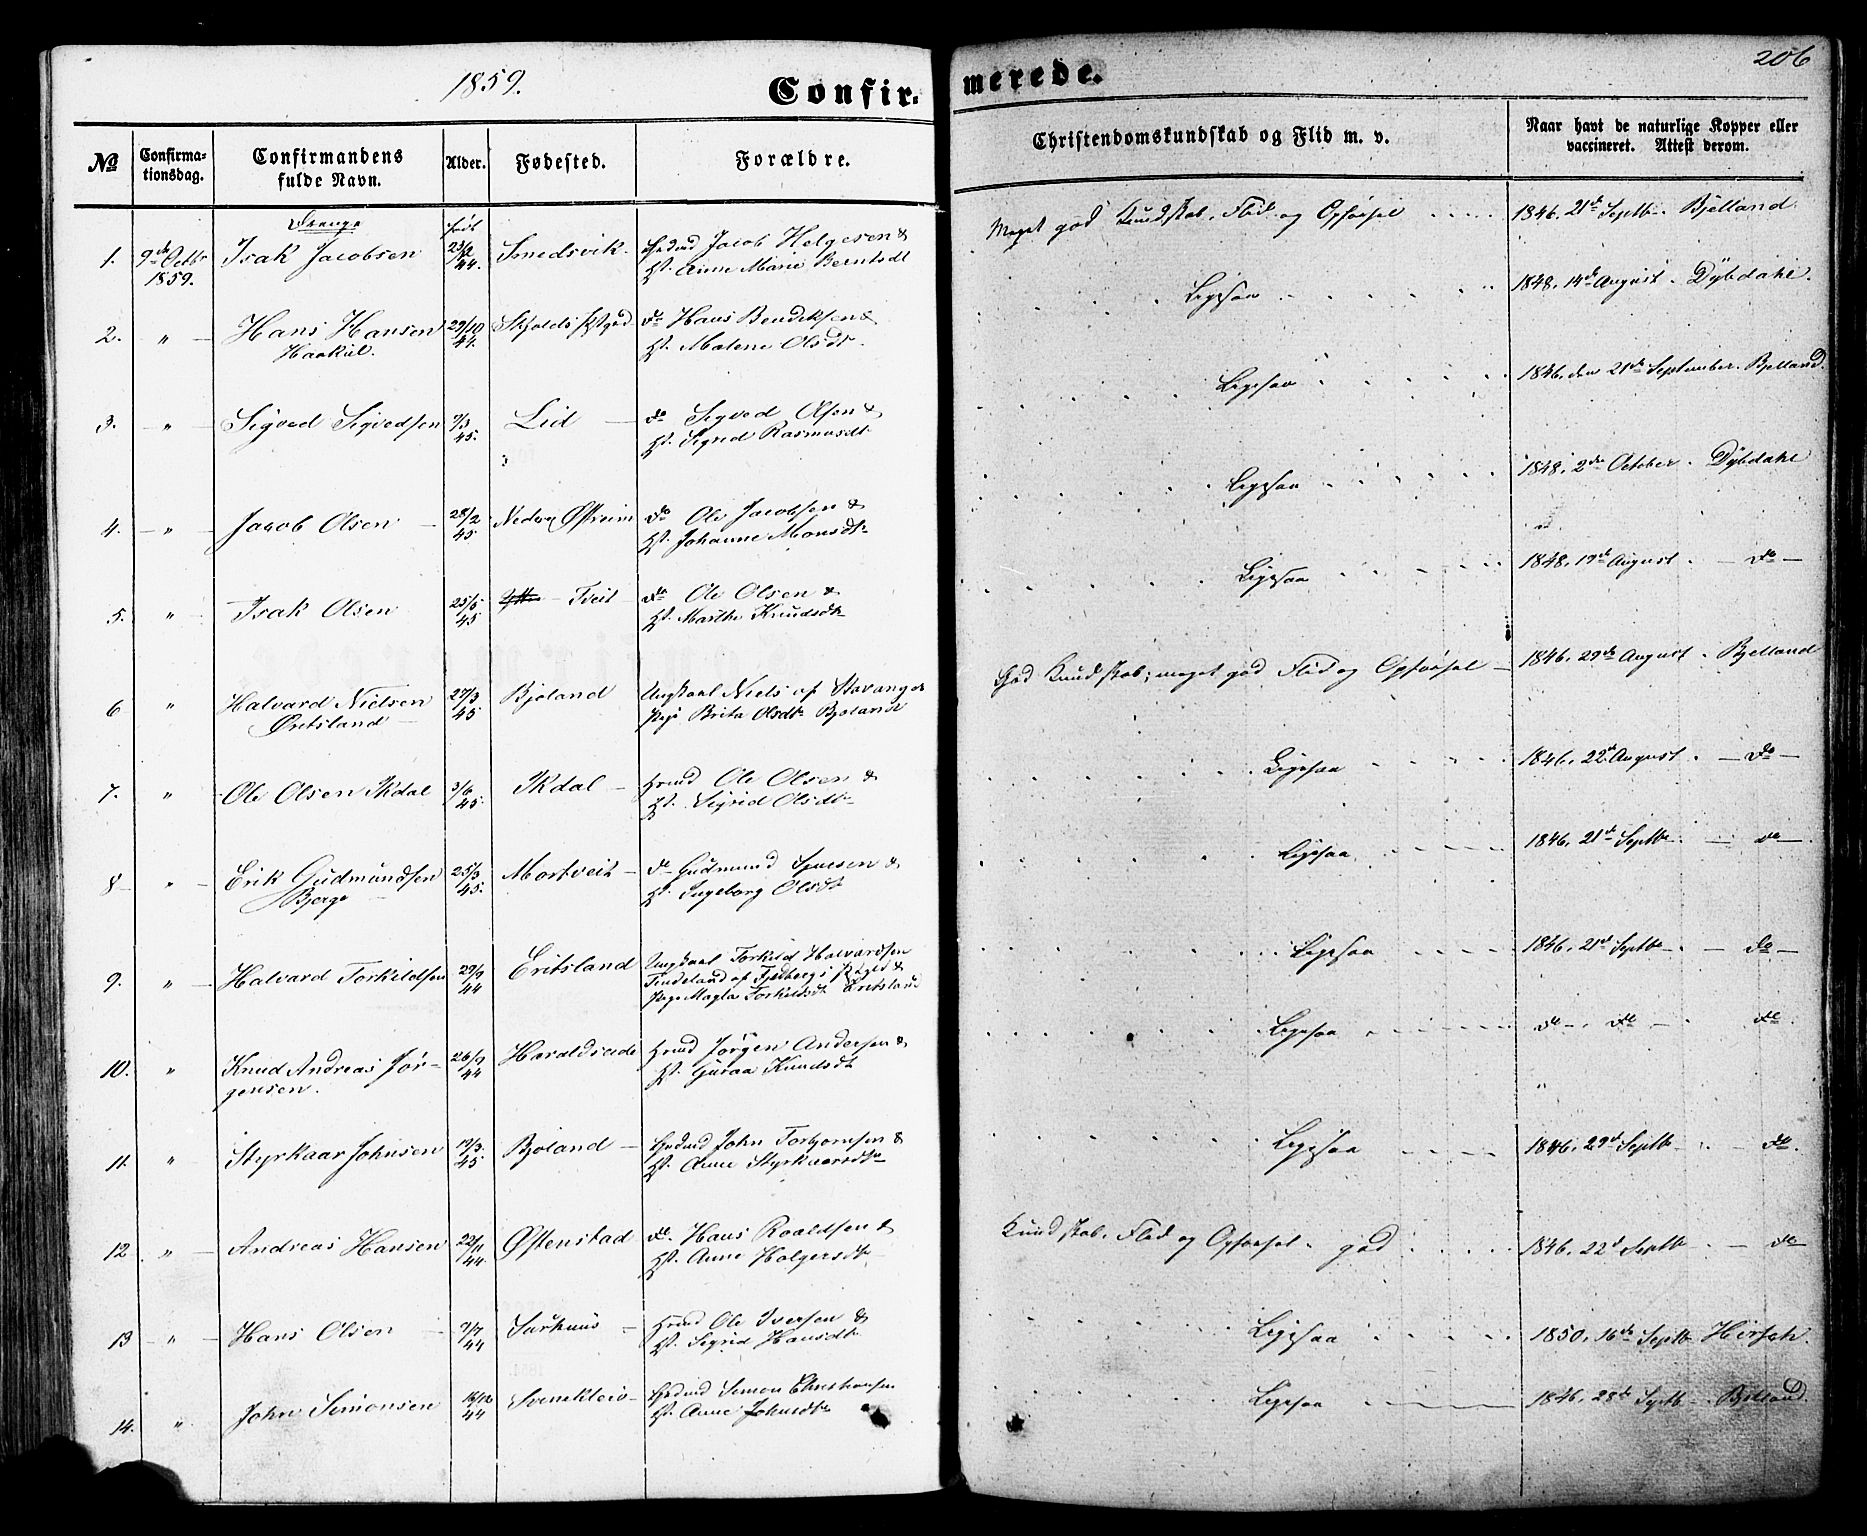 1859.
Confir-
merede.
206
No
Confirma-
tionsdag.
Confirmandens
fulde Navn.
Alder.
Fødested.
Forældre.
Christendomskundskab og Flid m. v.
Naar havt de naturlige Kopper eller
vaccineret. Attest derom.
Drenge
født
1. 9de Octbr 1859. Isak Jacobsen 44. Smedsvik. Jacob Helgesen &
H. Anne Marie Berntsdt
Meget god Kundskab, Flid og Opførsel 1846, 21de Septb. Bjelland.
2. " Hans Hansen 29/10 44. Skjolds Do Hans Bendiksen &
H. Malene Olsdt.
Ligesaa 1848, 14de August. Dybdahl.
3. " Sigved Sigvedsen 45. Lid Do Sigved Olsen &
H. Sigrid Rasmusdt
Ligesaa 1846, den 21de September. Bjelland.
4. " Jacob Olsen 28/2 45. Do Ole Jacobsen &
H. Johanne Monsdt
Ligesaa 1848, 2den October. Dybdahl
5. " Isak Olsen 25/5 45 Tveit Do Ole Olsen &
H. Marthe Knudsdt
Ligesaa 1848, 19de August. — Do —
6 " Halvard Nielsen
Øritsland 27/3 45 Bjoland Ungkarl Niels af Stavanger
Pige Brita Olsdt Bjoland
God Kundskab; meget god Flid og Opførsel — 1846, 29de August. Bjelland
7. " Ole Olsen Ikdal 3/6 45. Ikdal — Ole Olsen &
H. Sigrid Olsdt
Ligesaa 1846, 22d August. — Do —
8 — " Erik Gudmundsen
Bjerge 25/3 45. Mortveit — Do Gudmund &
H. Ingeborg Olsdt
Ligesaa 1846, 21de Septb. — Do —
9. " Halvard Torkildsen 29/9 44 Eritsland Ungkarl Torkild Halvardsen
Tindeland af Fjedbergs &
Pige Magla Torkildsdt Eritsland
Ligesaa 1846, 21de Septb. — Do —
10. " Knud Andreas Jør-
gensen. 26/9 44 Haraldseide Jørgen Andersen &
H. Guroa Knudsdt
Ligesaa Do —, Do — Do.
11. " Styrkaar Johnsen 19/3 45 Bjoland — John Torbjørnsen &
H. Anne Styrkaarsdt
Ligesaa 1846, 29d Septb. Do.
12 " Andreas Hansen 22/11 44 Østenstad Do Hans Roaldsen &
H. Anne Holgersdt
Kundskab, Flid og Opførsel god 1846, 22d Septb. — Do
13 — " Hans Olsen 44 — Ole Iversen &
H. Sigrid Hansdt
Ligesaa 1850, 16de Septb Hirsch.
14. " John Simonsen 44 Simon Christiansen
H. Anne Johnsdt
Ligesaa 1846, 28de Septb. Bjelland.